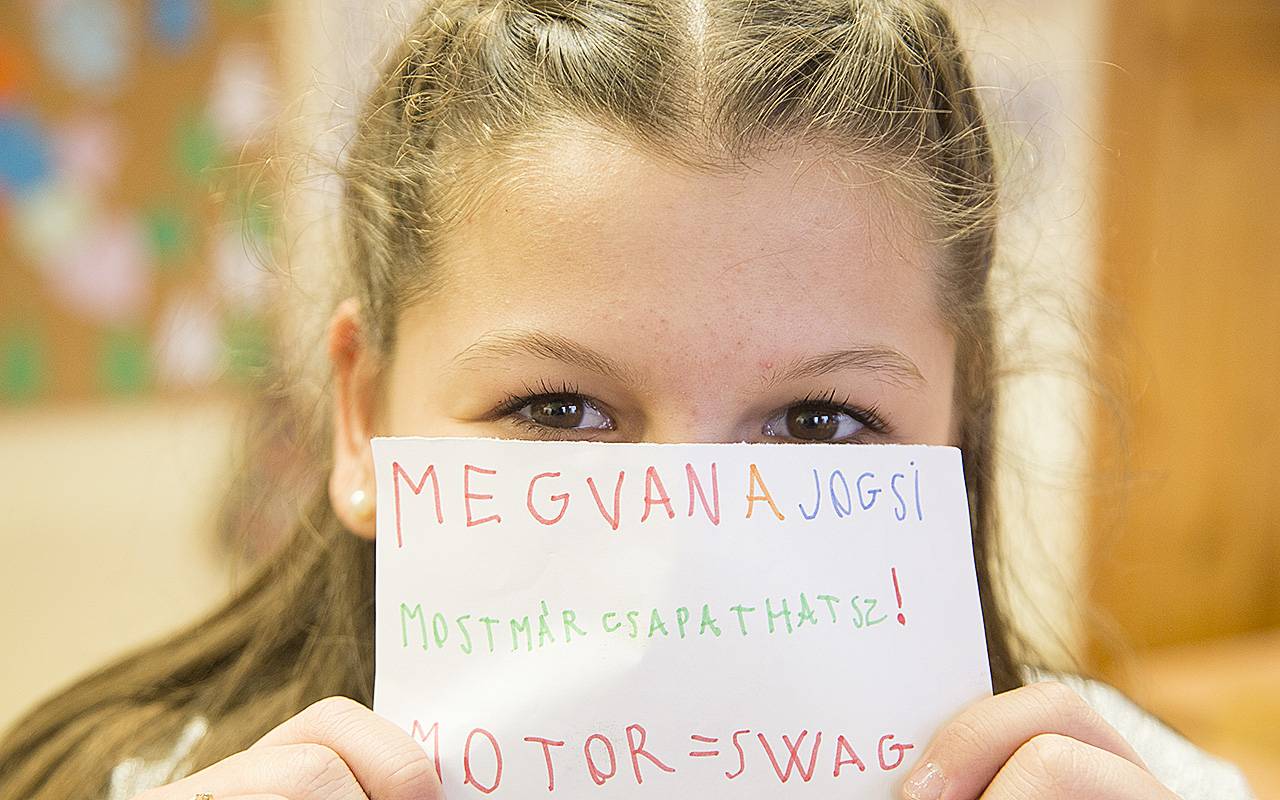 MEGVAN A JOGSI
MOSTMÁR CSAPATHATSZ!
MOTOR=SWAG